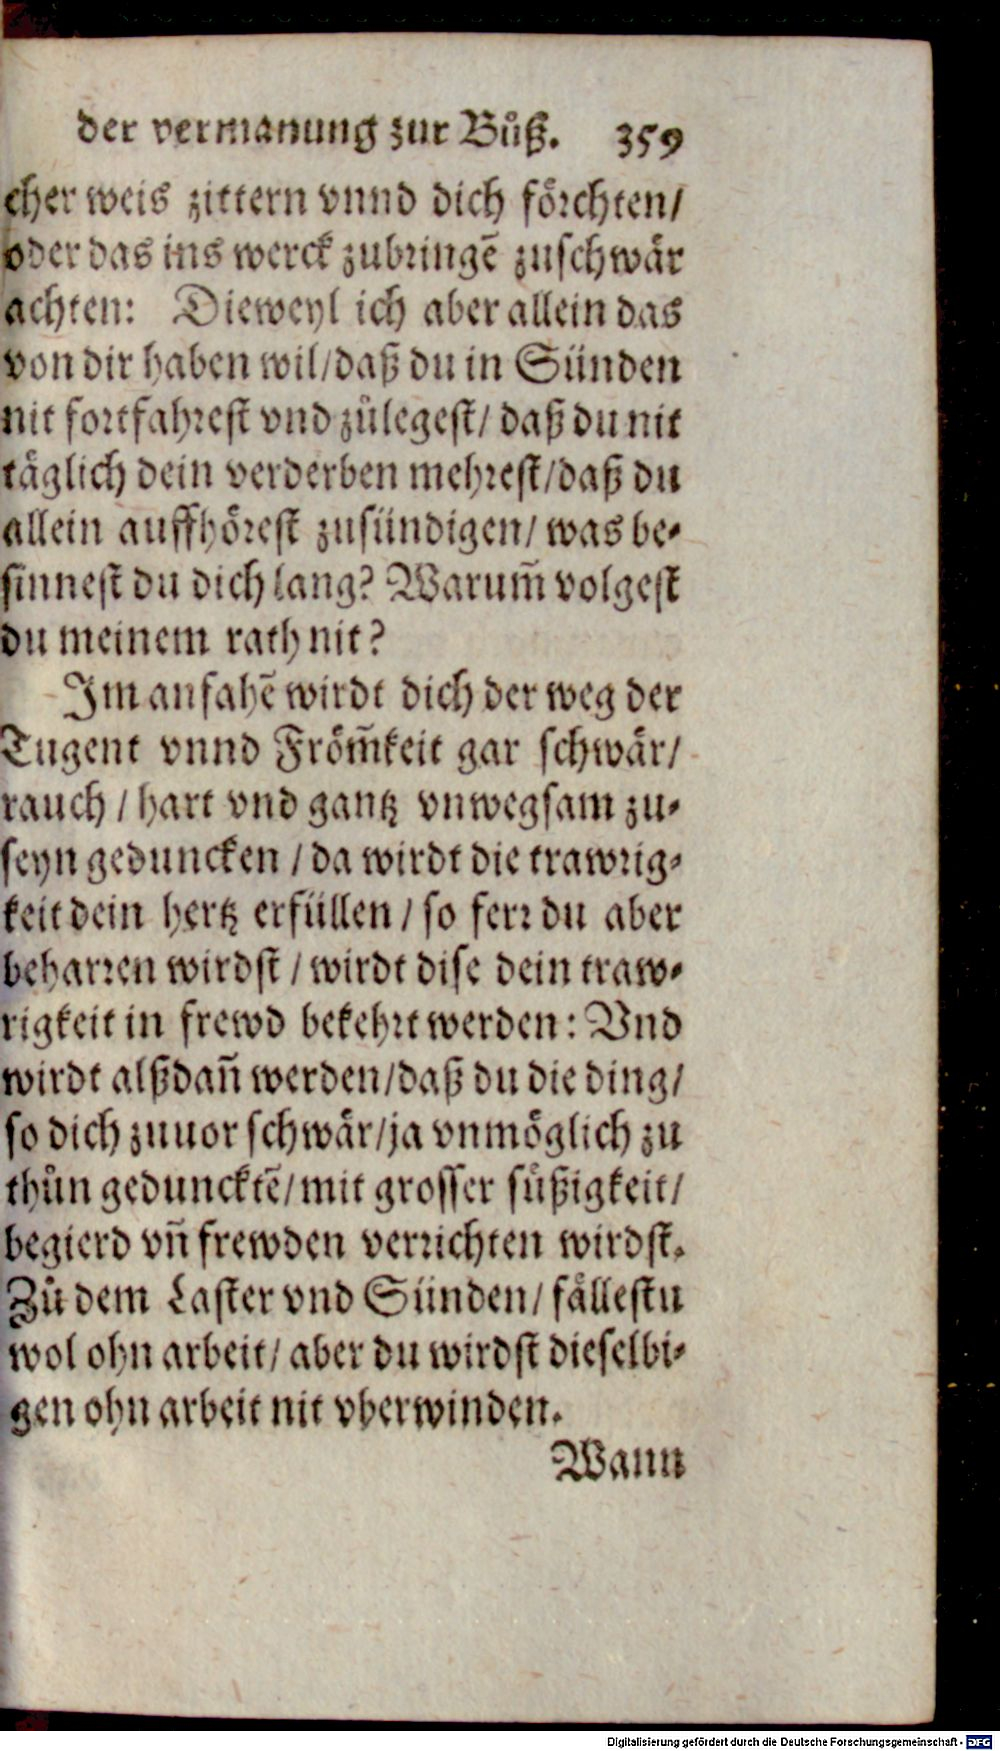 der vermanung zur Bůß. 359
cher weis zittern vnnd dich förchten/
oder das ins werck zubringẽ zuschwär
achten: Dieweyl ich aber allein das
von dir haben wil/daß du in Sünden
nit fortfahrest vnd zůlegest/ daß du nit
täglich dein verderben mehrest/daß du
allein auffhörest zusündigen/ was be-
sinnest du dich lang? Warum̃ volgest
du meinem rath nit?
Im anfahẽ wirdt dich der weg der
Tugent vnnd Fröm̃keit gar schwär/
rauch / hart vnd gantz vnwegsam zu-
seyn geduncken / da wirdt die trawrig-
keit dein hertz erfüllen / so ferr du aber
beharren wirdst / wirdt dise dein traw-
rigkeit in frewd bekehrt werden: Vnd
wirdt alßdañ werden/daß du die ding/
so dich zuuor schwär/ja vnmöglich zu
thůn gedunncktẽ/mit grosser süßigkeit/
begierd vñ frewden verrichten wirdst.
Zů dem Laster vnd Sünden/ fällestu
wol ohn arbeit/ aber du wirdst dieselbi-
gen ohn arbeit nit vberwinden.
Wann
Digitalisierung gefördert durch die Deutsche Forschungsgemeinschaft - DFG